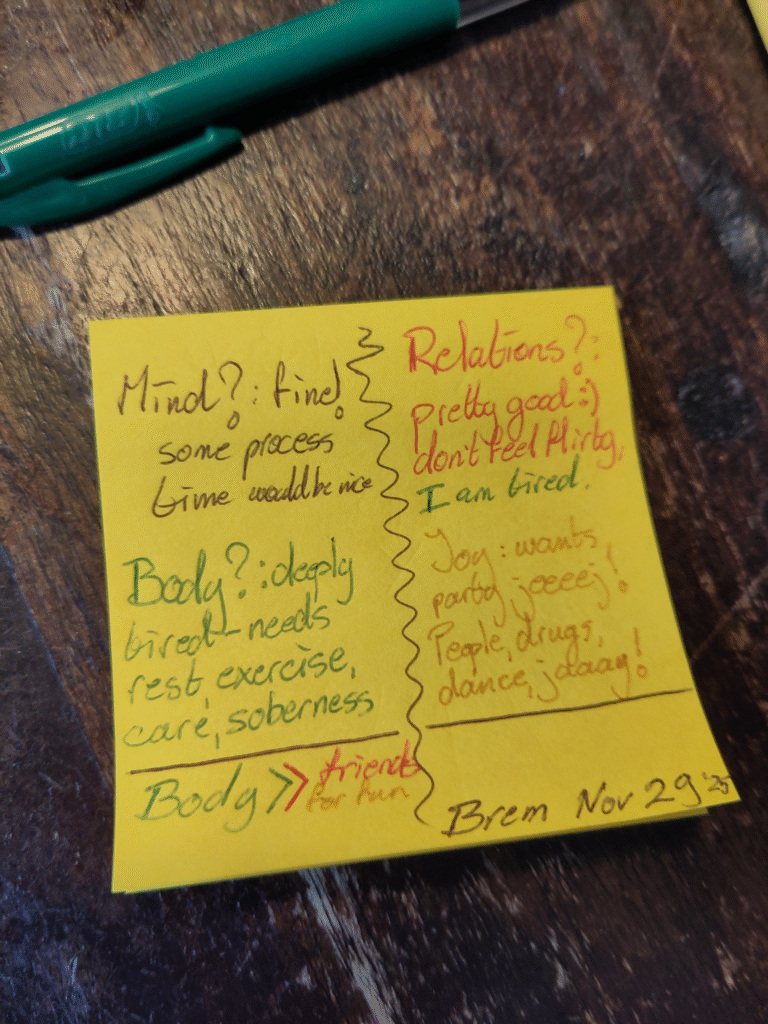 Mind?: fine!
some process
time would be nice
Body?: deeply
tired - needs
rest, exercise,
care, soberness
Body >> friends
for fun
Relations?:
pretty good :)
don't feel flirty,
I am tired.
Joy: wants
party joeeej!
People, drugs,
dance, jaaaay!
Brem Nov 29 '25